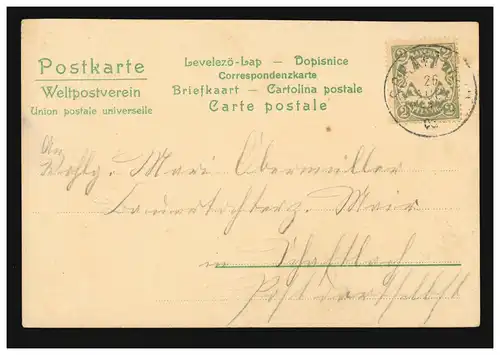 Postkarte
Weltpostverein
Union postale universelle
Levelező-Lap — Dopisnice
Correspondenzkarte
Briefkaart — Cartolina postale
Carte postale
2 2
26
03
An
Wohlg. Mari Obermüller
Mair
in Schaftlach
Post dortselbst